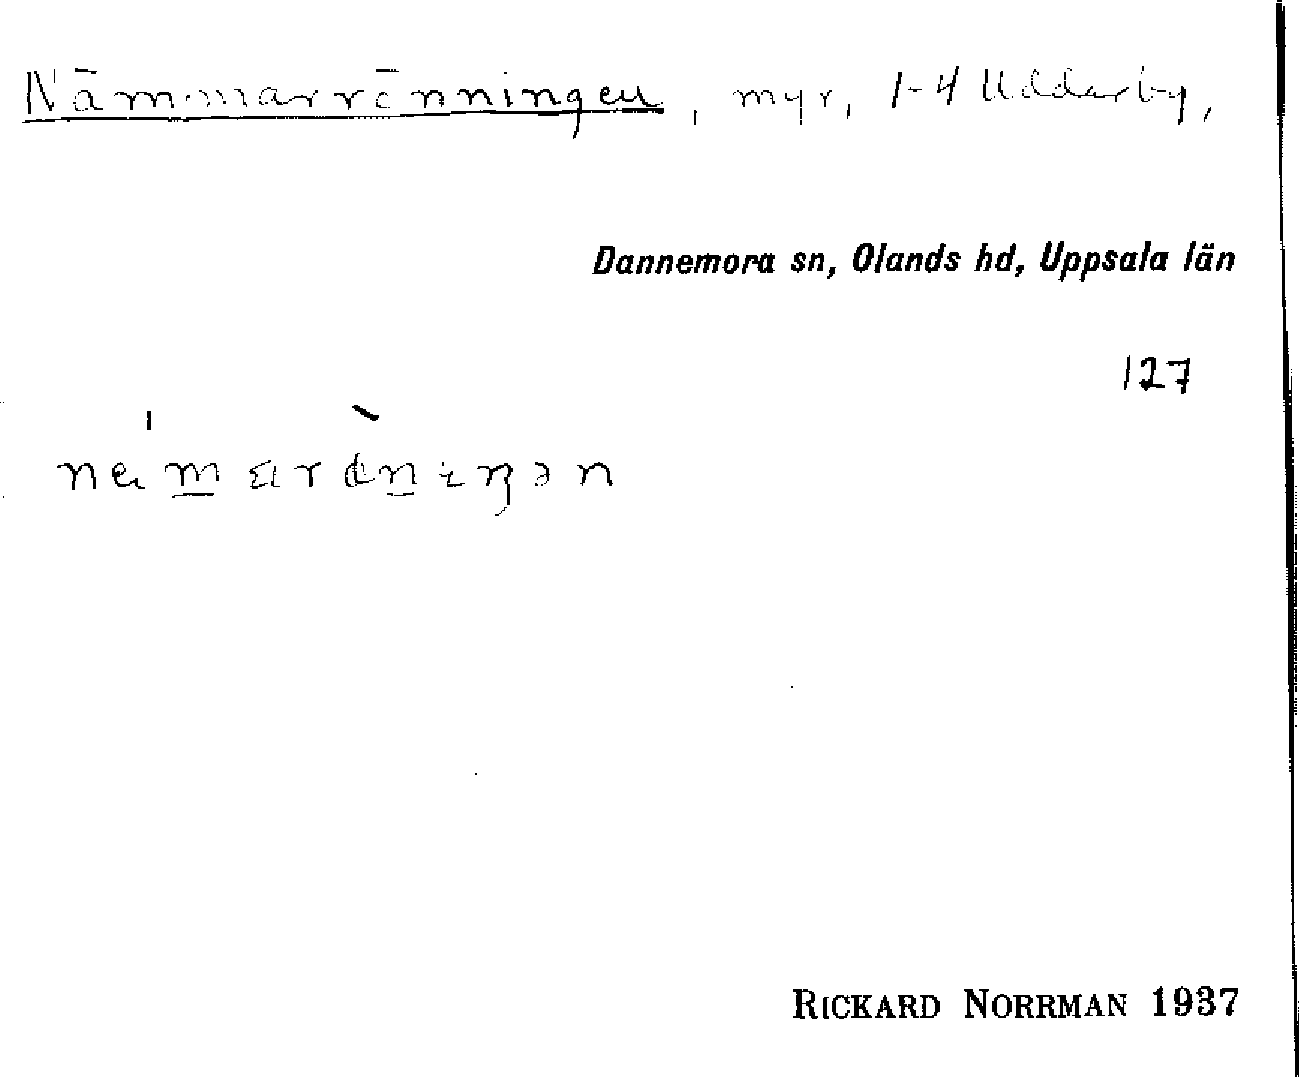 Nämmarrönningen, myr, 1-4 Uddarby,
Dannemora sn, Olands hd, Uppsala län
127
RICKARD NORRMAN 1937